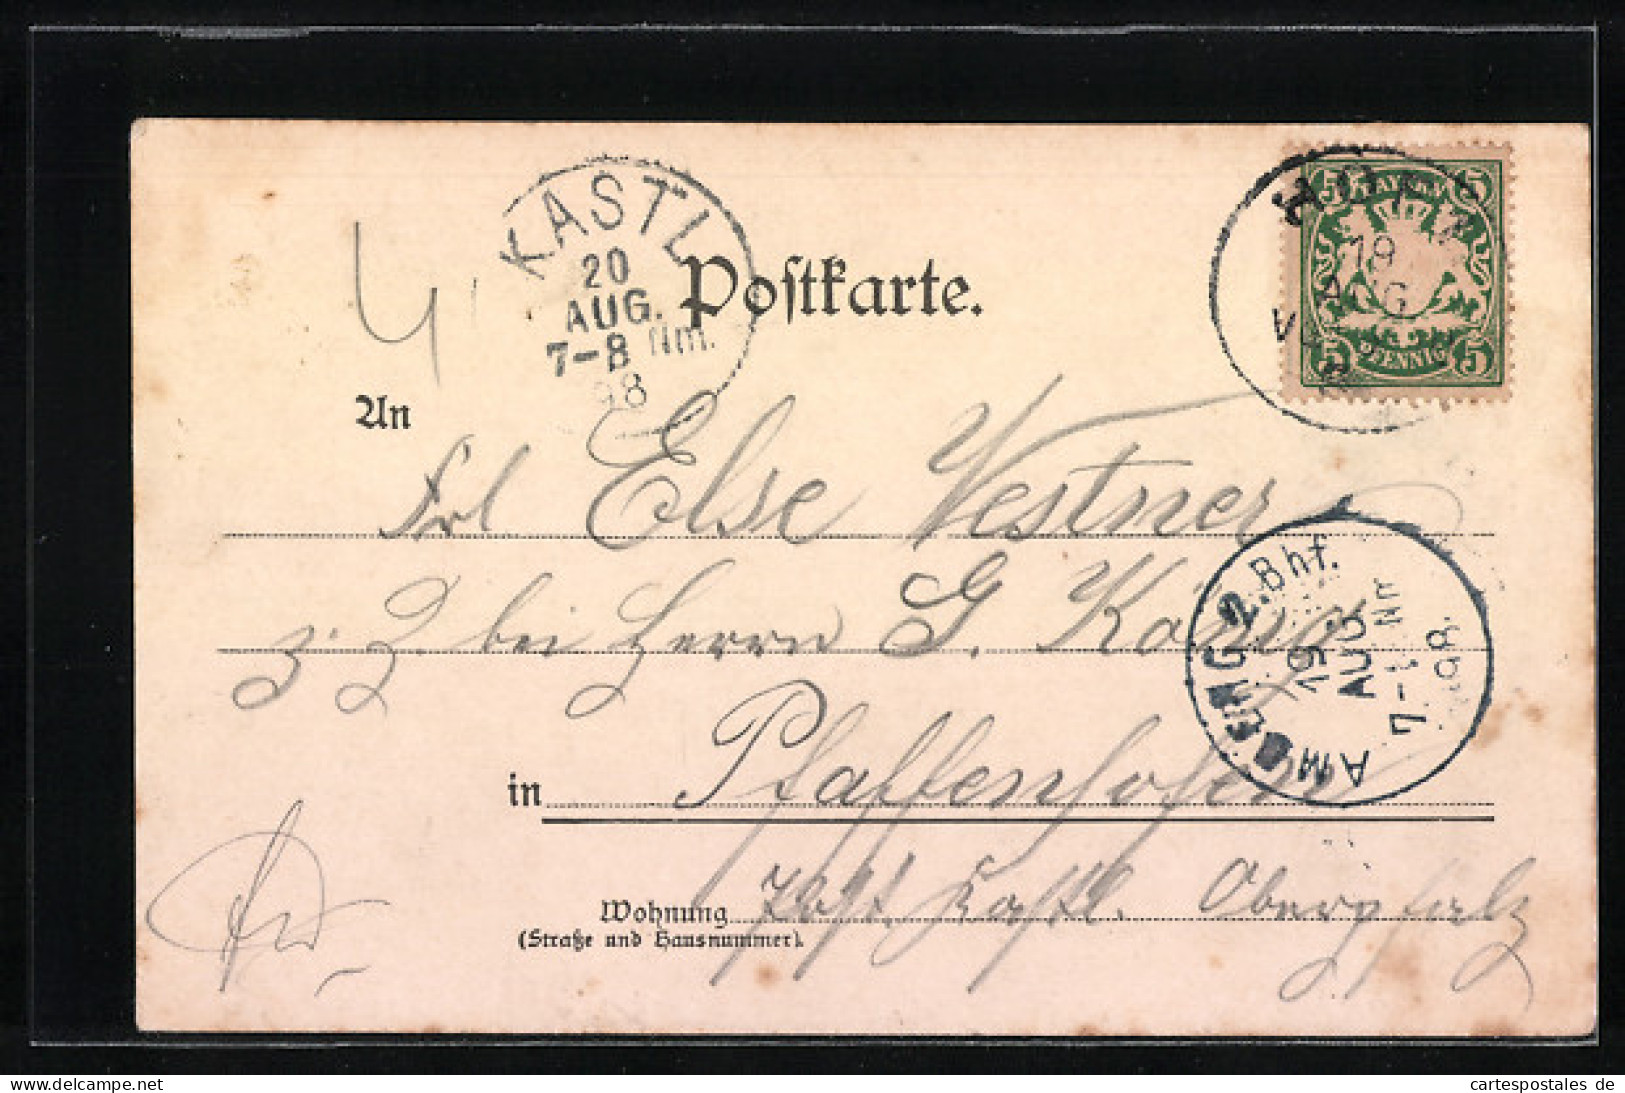 KASTL
20
AUG.
7-8 Nm.
98
Postkarte.
5 BAYERN 5
19
AUG
5 PFENNIG 5
An
Frl Else Vestner
z. Z. bei Herrn G. König
AMBERG 2. Bhf.
19
AUG
7-8 Nm
98.
in Pfaffenhofen
Wohnung Post Kastl. Oberpfalz
(Straße und Hausnummer).
www.delcampe.net
cartespostales de